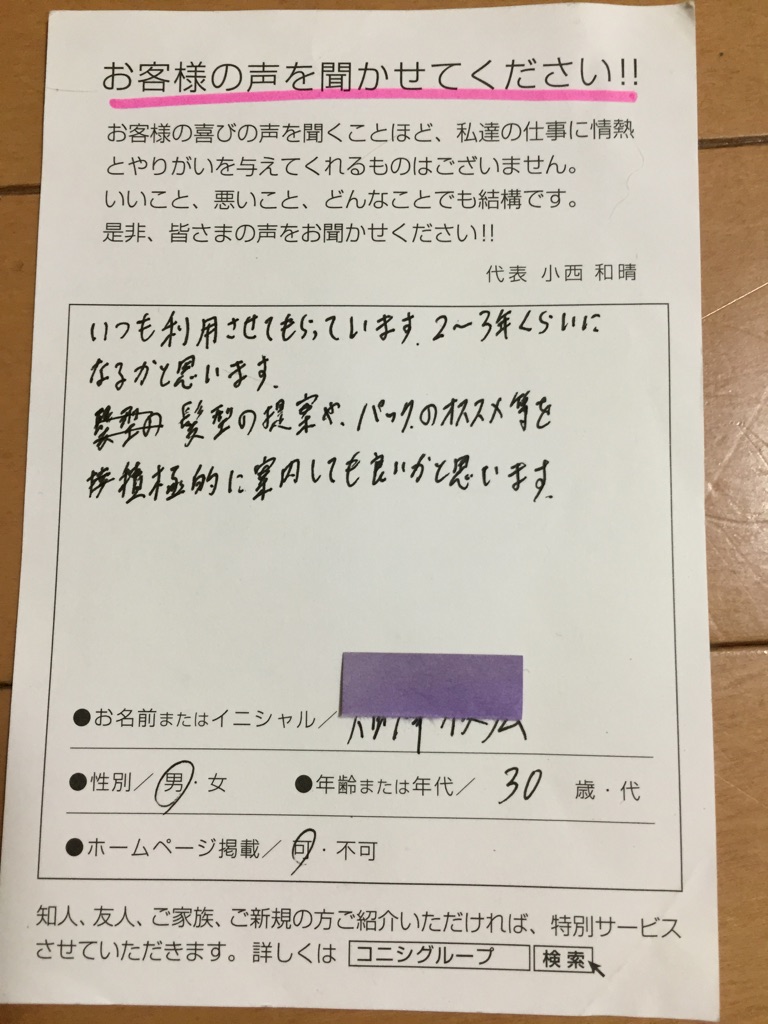 お客様の声を聞かせてください!!
お客様の喜びの声を聞くことほど、私達の仕事に情熱
とやりがいを与えてくれるものはございません。
いいこと、悪いこと、どんなことでも結構です。
是非、皆さまの声をお聞かせください!!
代表 小西 和晴
いつも利用させてもらっています。2〜3年くらいに
なるかと思います。
髪型の提案や、パックのオススメ等を
積極的に案内しても良いかと思います。
●お名前またはイニシャル／
●性別／男・女 ●年齢または年代／ 30 歳・代
●ホームページ掲載／可・不可
知人、友人、ご家族、ご新規の方ご紹介いただければ、特別サービス
させていただきます。詳しくは コニシグループ 検索